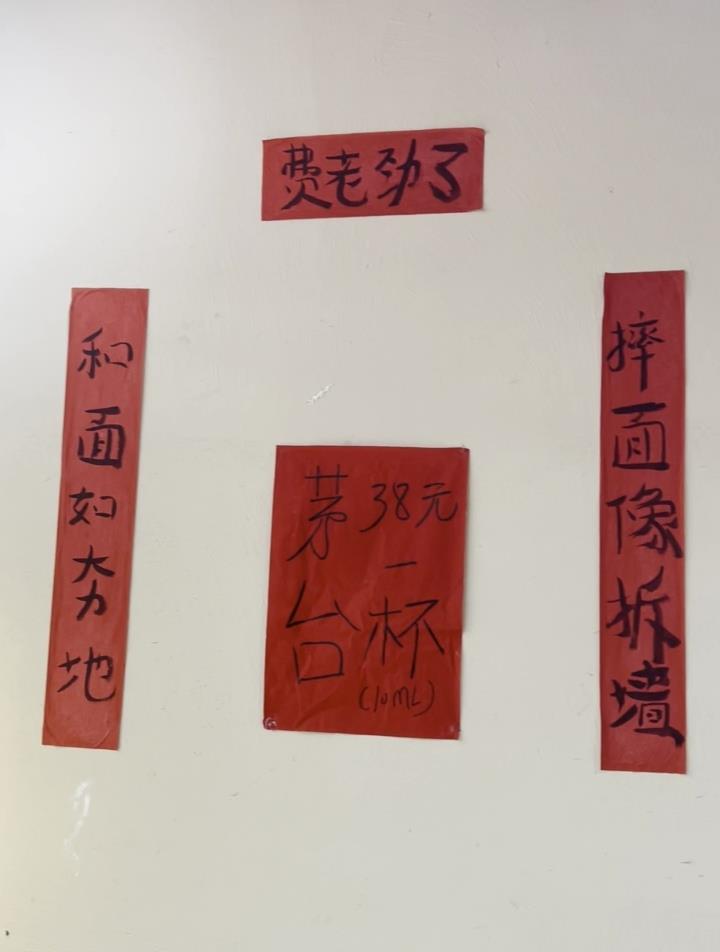 费老劲了
和面如夯地
茅台
38元
一
杯
(10ML)
摔面像拆墙